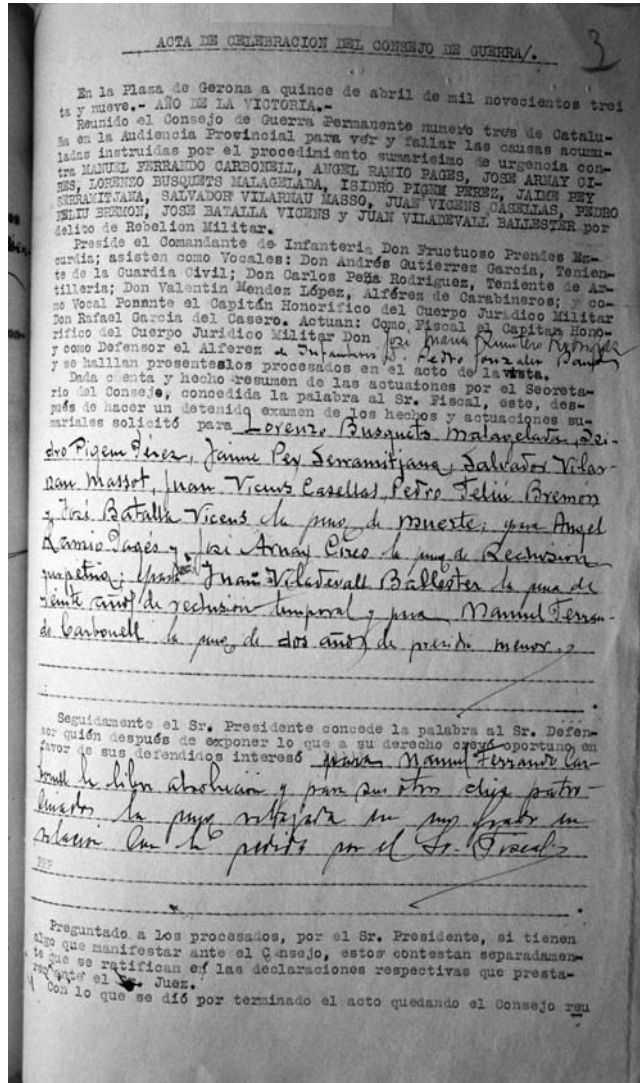 3
ACTA DE CELEBRACION DEL CONSEJO DE GUERRA/.
En la Plaza de Gerona a quince de abril de mil novecientos trei
ta y nueve.- AÑO DE LA VICTORIA.-
Reunido el Consejo de Guerra Permanente numero tres de Catalu-
ña en la Audiencia Provincial para ver y fallar las causas acumu-
ladas instruidas por el procedimiento sumarisimo de urgencia con-
tra MANUEL FERRANDO CARBONELL, ANGEL RAMIO PAGES, JOSE ARNAY CI-
RES, LORENZO BUSQUETS MALAGELADA, ISIDRO PIGEM PEREZ, JAIME PEY
SERRAMITJANA, SALVADOR VILARNAU MASSO, JUAN VICENS CASELLAS, PEDRO
FELIU BREMON, JOSE BATALLA VICENS y JUAN VILADEVALL BALLESTER por
delito de Rebelion Militar.
Preside el Comandante de Infanteria Don Fructuoso Prendes Es-
curdia; asisten como Vocales: Don Andrés Gutierres Garcia, Tenien-
te de la Guardia Civil; Don Carlos Peña Rodriguez, Teniente de Ar-
tilleria; Don Valentin Mendez López, Alférez de Carabineros; y co-
mo Vocal Ponente el Capitán Honorifico del Cuerpo Juridico Militar
Don Rafael Garcia del Casero. Actuan: Como Fiscal el Capitan Hono-
rifico del Cuerpo Juridico Militar Don José Maria
y como Defensor el Alferez de Infanteria D. Pedro Gonzalez
y se halllan presenteslos procesados en el acto de lavista.
Dada cuenta y hecho resumen de las actuaiones por el Secreta-
rio del Consejo, concedida la palabra al Sr. Fiscal, este, des-
pués de hacer un detenido examen de los hechos y actuaciones su-
mariales solicitó para Lorenzo Busquets Malagelada, Isi-
dro Pigem Pérez, Jaime Pey Serramitjana, Salvador Vilar-
nau Massot, Juan Vicens Casellas, Pedro Feliú Bremon
y José Batalla Vicens la pena de muerte; para Angel
Ramio Pagés y José Arnay Cires la pena de Reclusion
perpetua; para Juan Viladevall Ballester la pena de
veinte años de reclusion temporal y para Manuel Ferran-
do Carbonell la pena de dos años de presidio menor.
Seguidamente el Sr. Presidente concede la palabra al Sr. Defen-
sor quién después de exponer lo que a su derecho creyó oportuno en
favor de sus defendidos interesó para Manuel Ferrando Car-
bonell la libre absolucion y para sus otros diez patro-
cinados la pena rebajada en un grado en
relacion con la pedida por el Sr. Fiscal
PPP
Preguntado a los procesados, por el Sr. Presidente, si tienen
algo que manifestar ante el Consejo, estos contestan separadamen-
te que se ratifican en las declaraciones respectivas que presta-
ron ante el Sr. Juez.
Con lo que se dió por terminado el acto quedando el Consejo reu